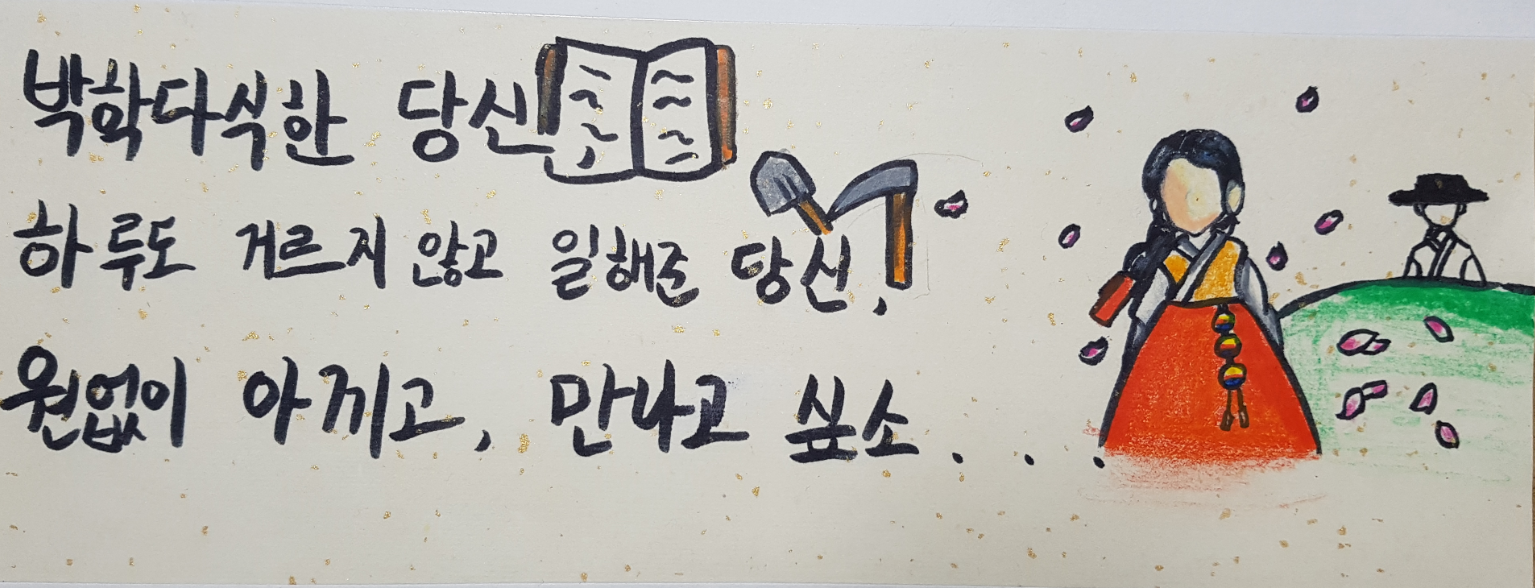 박학다식한 당신,
하루도 거르지 않고 일해준 당신,
원없이 아끼고, 만나고 싶소...